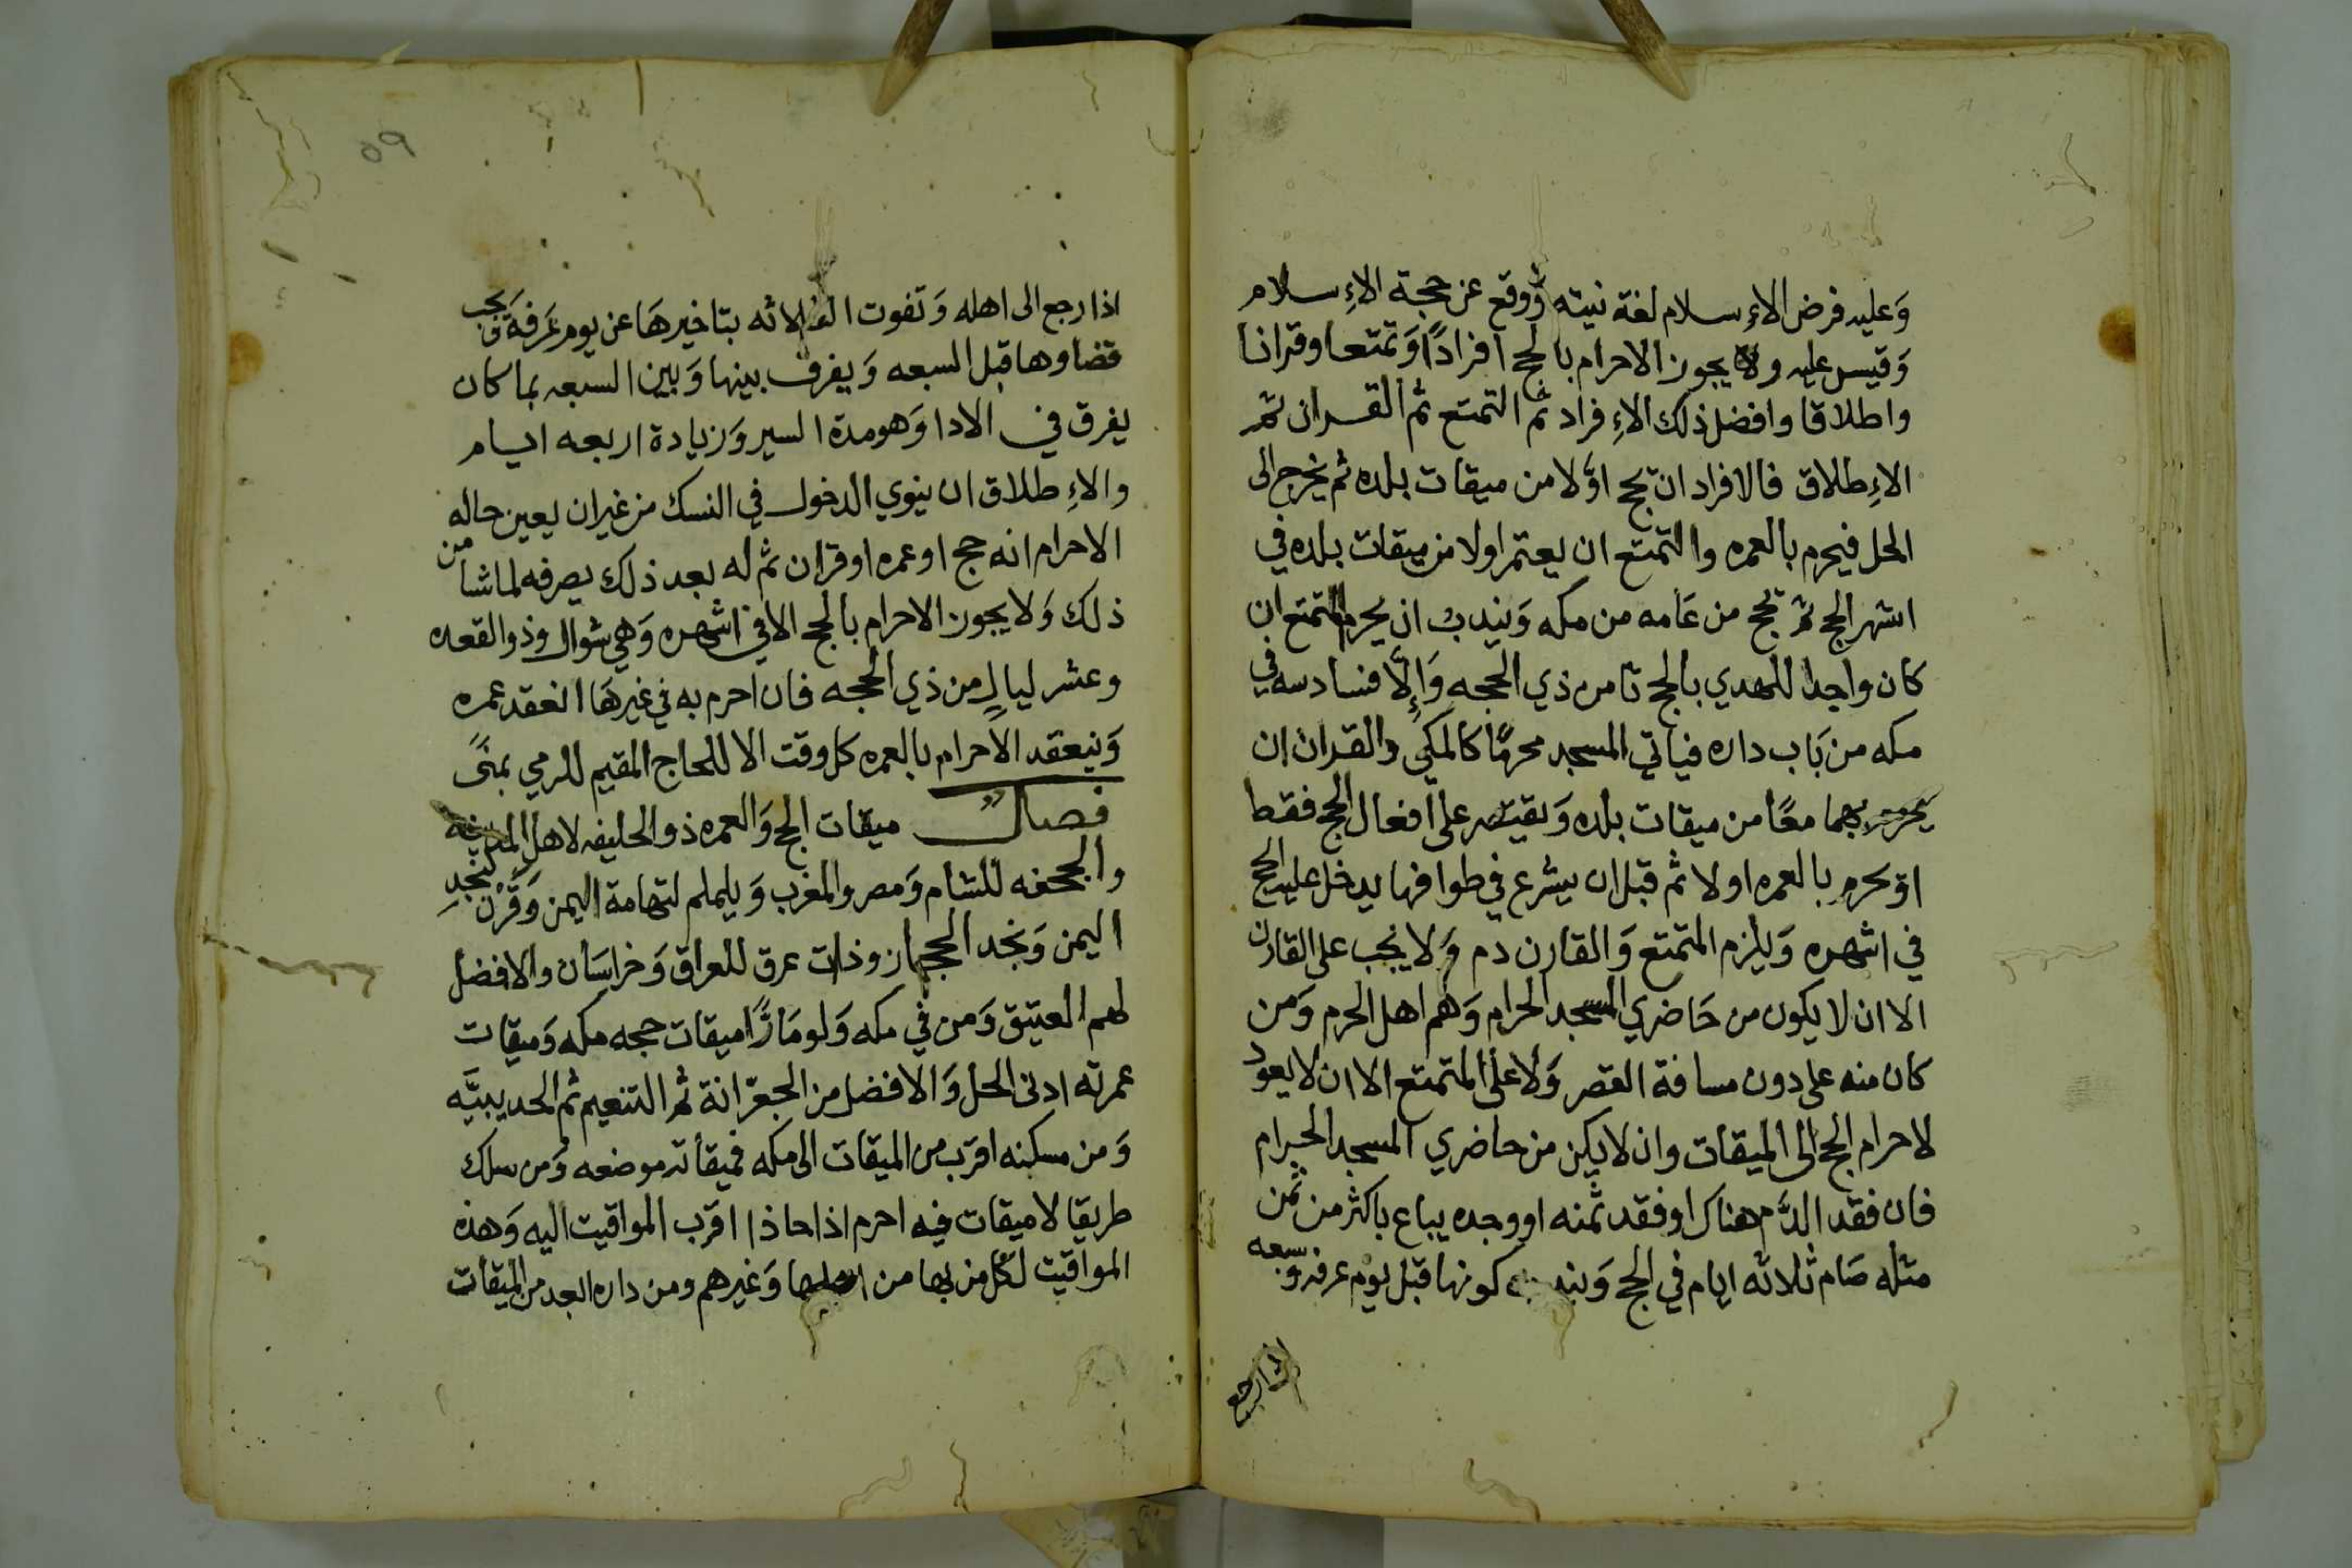 وَعليه فرض الاءِسلام لغة نيته وَوقع عن حجة الاءِسلام
وَقيس عليه ولا يجوز الاحرام بالحج افرادًا وَتمتعا وقرانا
واطلاقا وافضل ذلك الاءِفراد ثم التمتع ثم القران ثم
الاءِطلاق فالافراد ان تحج اوَّلا من ميقات بلده ثم يخرج الى
الحل فيحرم بالعمره والتمتع ان يعتمر اولا من ميقات بلده في
اشهر الحج ثم تحج من عَامه من مكه وَيندب ان يحرم المتمتع ان
كان واجدا للهدي بالحج ثامن ذي الحجه وَإِلَّا فسادسه في
مكه من بَاب داره فياتي المسجد محرمًا كالمكي والقران ان
يحرم بهما معًا من ميقات بلده وَيقتصر على افعال الحج فقط
او يحرم بالعمره اولا ثم قبل ان يشرع في طوافها يدخل عليه الحج
في اشهره وَيلزم المتمتع وَالقارن دم وَلا يجب على القارن
الا ان لا يكون من حَاضري المسجد الحرام وَهم اهل الحرم وَمن
كان منه على دون مسافة القصر وَلا على المتمتع الا ان لا يعود
لاحرام الحج الى الميقات وان لا يكن من حاضري المسجد الحرام
فان فقد الدَّم هناك او فقد ثمنه او وجده يباع باكثر من ثمن
مثله صَام ثلاثه ايام في الحج وَيندب كونها قبل يوم عرفه وسبعه
اذا رجع
٥٩
اذا رجع الى اهله وَتفوت الثلاثه بتاخيرهَا عن يوم عَرفة وَيجب
قضاوها قبل السبعه وَيفرق بينها وَبين السبعه بما كان
يفرق في الادا وَهو مدة السير وَزيادة اربعه ايام
والاءِطلاق ان ينوي الدخول في النسك من غير ان يعين حاله
الاحرام انه حج او عمره او قران ثم له بعد ذلك يصرفه لما شا من
ذلك وَلا يجوز الاحرام بالحج الا في اشهره وَهي شوال وذو القعده
وعشر ليالٍ من ذي الحجه فان احرم به في غيرهَا انعقد عمره
وَينعقد الاحرام بالعمره كل وقت الا للحاج المقيم للرمي بمنًى
فصل ميقات الحج وَالعمره ذو الحليفه لاهل المدينه
والجحفه للشام وَمصر والمغرب وَيلملم لتهامة اليمن وَقَرْن لنجدِ
اليمن وَنجد الحجاز وذات عرق للعراق وَخراسَان والافضل
لهم العتيق وَمن في مكه وَلو مَارًّا ميقات حجه مكه وَميقات
عمرته ادنى الحل وَالافضل من الجعرّانة ثم التنعيم ثم الحديبيَّه
وَمن مسكنه اقرب من الميقات الى مكه فميقاته موضعه وَمن سلك
طريقا لا ميقات فيه احرم اذا حاذا اقرب المواقيت اليه وَهذه
المواقيت لكل من بها من اهلها وَغيرهم ومن داره ابعد من الميقات